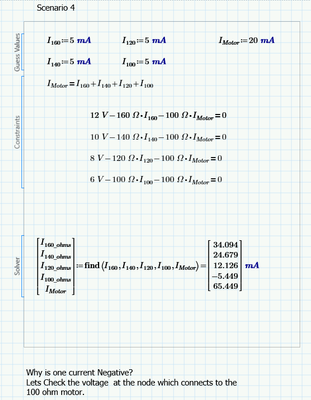 Scenario 4
Guess Values
I₁₆₀ := 5 mA I₁₂₀ := 5 mA I_Motor := 20 mA
I₁₄₀ := 5 mA I₁₀₀ := 5 mA
Constraints
I_Motor = I₁₆₀ + I₁₄₀ + I₁₂₀ + I₁₀₀
12 V − 160 Ω • I₁₆₀ − 100 Ω • I_Motor = 0
10 V − 140 Ω • I₁₄₀ − 100 Ω • I_Motor = 0
8 V − 120 Ω • I₁₂₀ − 100 Ω • I_Motor = 0
6 V − 100 Ω • I₁₀₀ − 100 Ω • I_Motor = 0
Solver
I₁₆₀_ohms 34.094
I₁₄₀_ohms 24.679
I₁₂₀_ohms := find (I₁₆₀, I₁₄₀, I₁₂₀, I₁₀₀, I_Motor) = 12.126 mA
I₁₀₀_ohms −5.449
I_Motor 65.449
Why is one current Negative?
Lets Check the voltage at the node which connects to the
100 ohm motor.